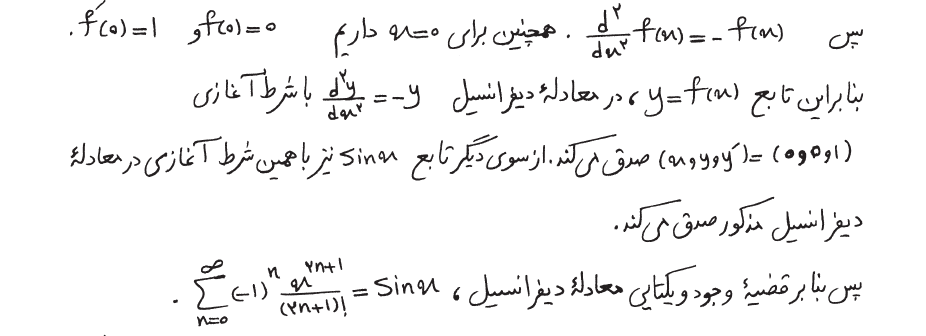 پس d²/dx² f(x) = -f(x) . همچنین برای x=0 داریم f(0)=0 و f′(0)=1 .
بنابراین تابع y=f(x) ، در معادلهٔ دیفرانسیل d²y/dx² = -y با شرط آغازی
(x و y و y′) = (0 و 0 و 1) صدق می‌کند. از سوی دیگر تابع sin x نیز با همین شرط آغازی در معادلهٔ
دیفرانسیل مذکور صدق می‌کند.
پس بنا بر قضیهٔ وجود و یکتایی معادلهٔ دیفرانسیل ، ∑_{n=0}^{∞} (-1)^n x^{۲n+1}/(۲n+1)! = Sin x .